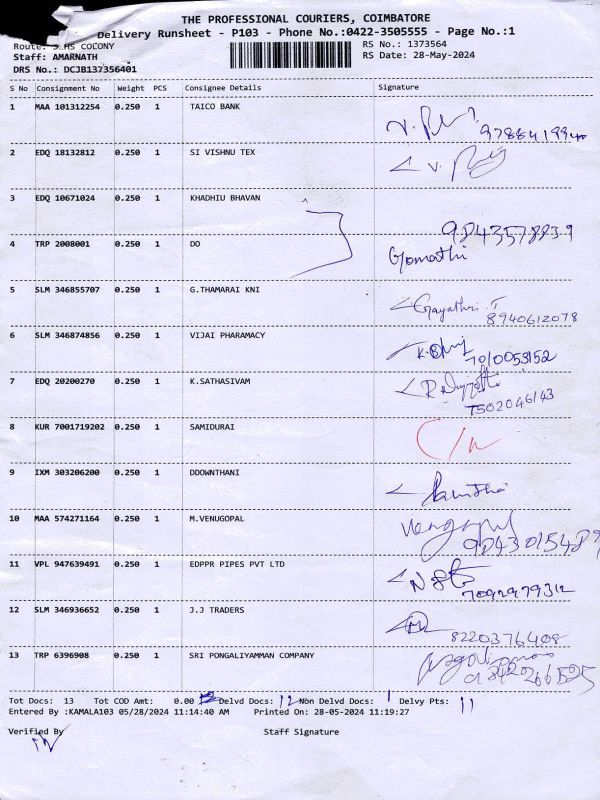 THE PROFESSIONAL COURIERS, COIMBATORE
Delivery Runsheet - P103 - Phone No.:0422-3505555 - Page No.:1
Route: HS COLONY RS No.: 1373564
Staff: AMARNATH RS Date: 28-May-2024
DRS No.: DCJB137356401
S No Consignment No Weight PCS Consignee Details Signature
1 MAA 101312254 0.250 1 TAICO BANK
2 EDQ 18132812 0.250 1 SI VISHNU TEX
3 EDQ 10671024 0.250 1 KHADHIU BHAVAN
9843578839
4 TRP 2008001 0.250 1 DO Gomathi
5 SLM 346855707 0.250 1 G.THAMARAI KNI Gayathri. T
8940612078
6 SLM 346874856 0.250 1 VIJAI PHARAMACY
7010053152
7 EDQ 20200270 0.250 1 K.SATHASIVAM
7502046143
8 KUR 7001719202 0.250 1 SAMIDURAI
9 IXM 303206200 0.250 1 DDOWNTHANI
10 MAA 574271164 0.250 1 M.VENUGOPAL
11 VPL 947639491 0.250 1 EDPPR PIPES PVT LTD
7092979312
12 SLM 346936652 0.250 1 J.J TRADERS
8220376408
13 TRP 6396908 0.250 1 SRI PONGALIYAMMAN COMPANY
Tot Docs: 13 Tot COD Amt: 0.00 Delvd Docs: 12 Non Delvd Docs: 1 Delvy Pts: 11
Entered By :KAMALA103 05/28/2024 11:14:40 AM Printed On: 28-05-2024 11:19:27
Verified By Staff Signature